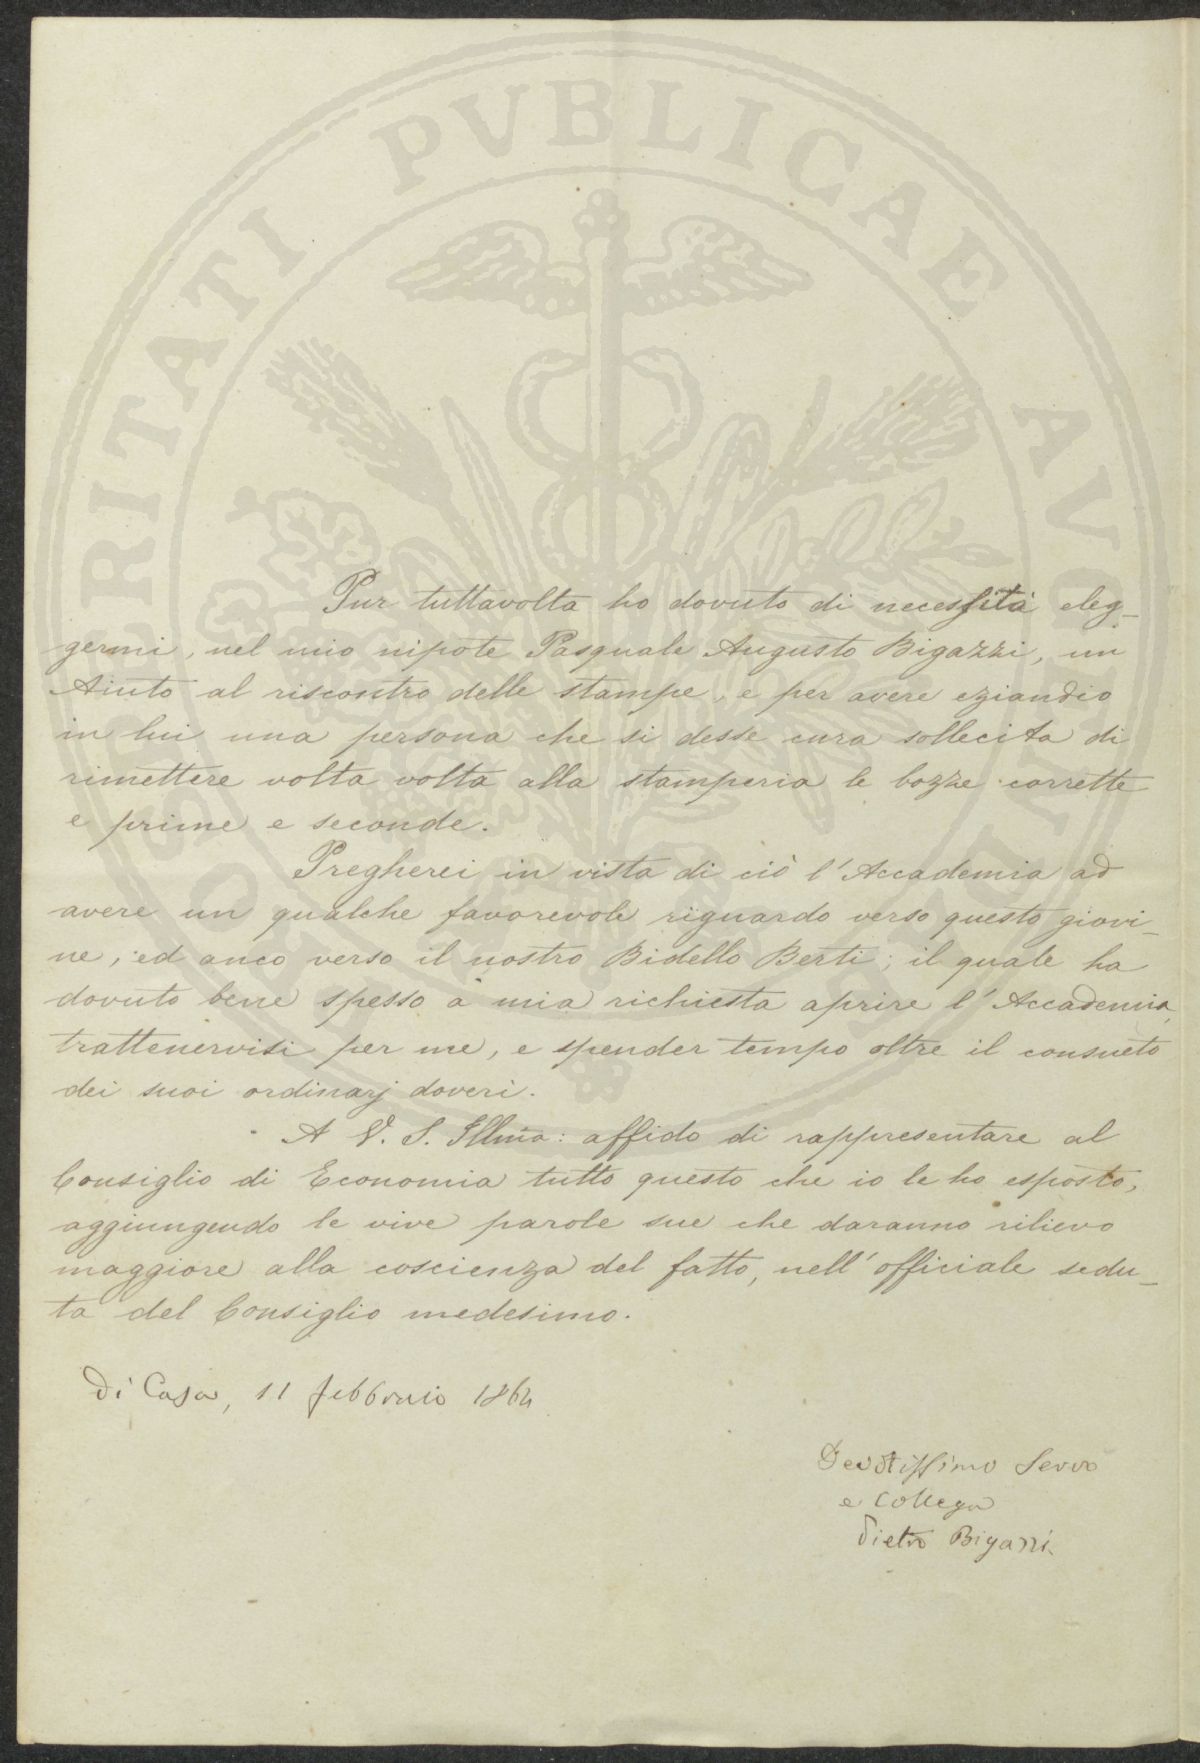 Pur tuttavolta ho dovuto di necessità eleg-
germi, nel mio nipote Pasquale Augusto Bigazzi, un
Aiuto al riscontro delle stampe, e per avere eziandio
in lui una persona che si desse cura sollecita di
rimettere volta volta alla stamperia le bozze corrette
e prime e seconde.
Pregherei in vista di ciò l'Accademia ad
avere un qualche favorevole riguardo verso questo giovi-
ne; ed anco verso il nostro Bidello Berti; il quale ha
dovuto bene spesso a mia richiesta aprire l'Accademia,
trattenervisi per me, e spender tempo oltre il consueto
dei suoi ordinarj doveri.
A V. S. Illma: affido di rappresentare al
Consiglio di Economia tutto questo che io le ho esposto,
aggiungendo le vive parole sue che daranno rilievo
maggiore alla coscienza del fatto, nell'officiale sedu-
ta del Consiglio medesimo.
Di Casa, 11 febbraio 1864
Devotissimo Servo
e Collega
Pietro Bigazzi
PROSPERITATI PVBLICAE AVGENDAE